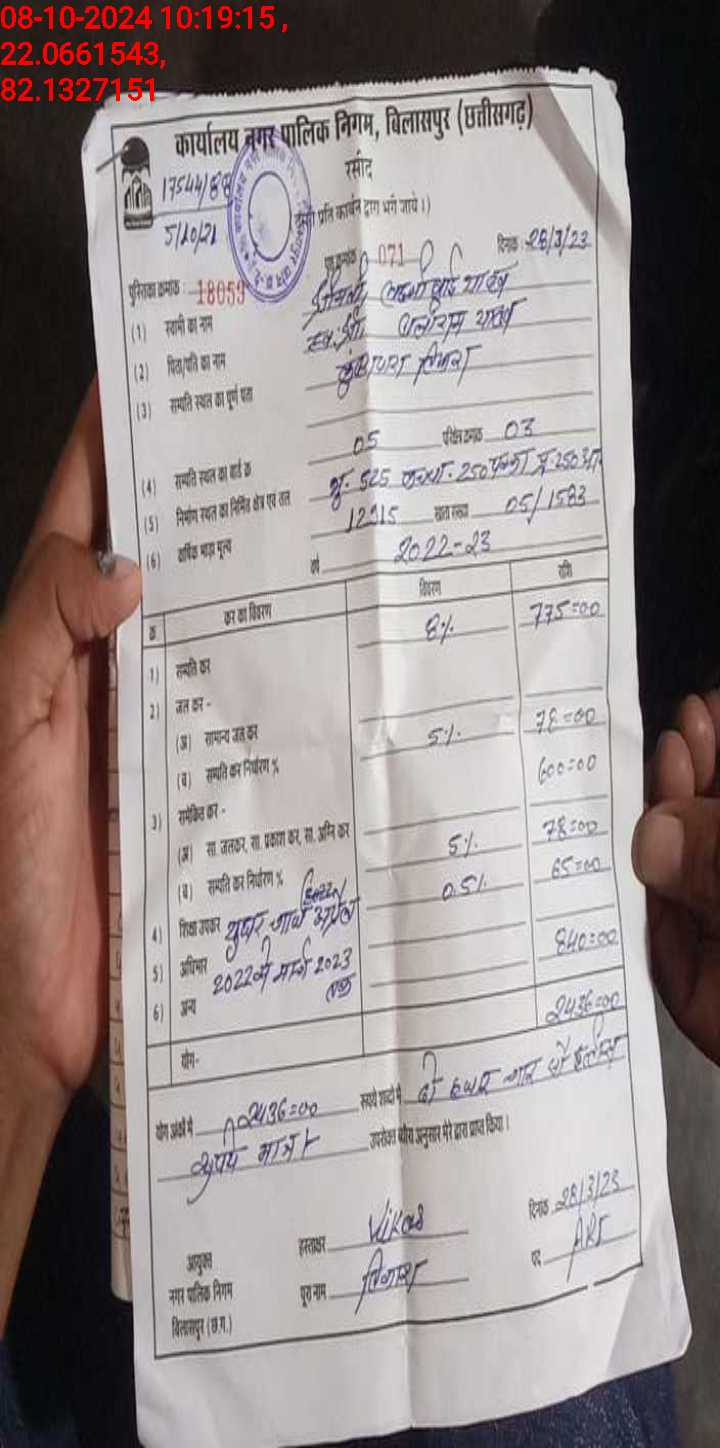 08-10-2024 10:19:15 ,
22.0661543,
82.1327151
कार्यालय नगर पालिक निगम, बिलासपुर (छत्तीसगढ़)
रसीद
17544/88
प्रति कार्बन द्वारा भरी जाये।)
5/10/21
पुस्तिका क्रमांक : 18059 071 दिनांक 28/3/23
(1) स्वामी का नाम श्रीमती यादव
(2) पिता/पति का नाम स्व. श्री यादव
(3) सम्पत्ति स्थल का पूर्ण पता
(4) सम्पत्ति स्थल का वार्ड क्र 05 परिक्षेत्र क्रमांक 03
(5) निर्माण स्थल का निर्मित क्षेत्र एवं तल भू. 525 250 250
(6) वार्षिक भाड़ा मूल्य 12915 खाता संख्या 05/1583
वर्ष 2022-23
क्र कर का विवरण विवरण राशि
1) सम्पत्ति कर 8% 775=00
2) जल कर -
(अ) सामान्य जल कर
(ब) सम्पत्ति कर निर्धारण % 5% 78=00
3) समेकित कर - 600=00
(अ) सा. जलकर, सा. प्रकाश कर, सा. अग्नि कर
(ब) सम्पत्ति कर निर्धारण % 5% 78=00
4) शिक्षा उपकर 0.5% 65=00
यूजर चार्ज अप्रैल
5) अधिभार
6) अन्य 2022 से मार्च 2023 तक 840=00
योग- 2436=00
योग अंकों में 2436=00 रुपये शब्दों में दो हजार चार सौ छत्तीस
रूपये मात्र उपरोक्त ब्यौरा अनुसार मेरे द्वारा प्राप्त किया।
आयुक्त हस्ताक्षर Vikas दिनांक 28/3/23
नगर पालिक निगम पूरा नाम विकास पद ARI
बिलासपुर (छ.ग.)